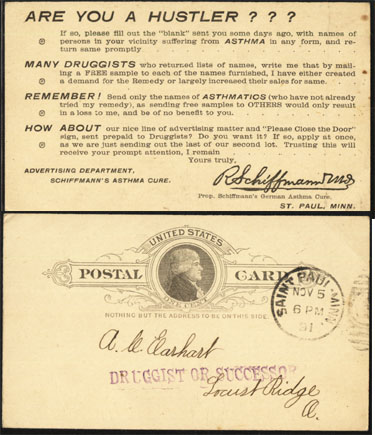 ARE YOU A HUSTLER ? ? ?
If so, please fill out the "blank" sent you some days ago, with names of
persons in your vicinity suffering from ASTHMA in any form, and re-
turn same promptly
MANY DRUGGISTS who returned lists of names, write me that by mail-
ing a FREE sample to each of the names furnished, I have either created
a demand for the Remedy or largely increased their sales for same.
REMEMBER! Send only the names of ASTHMATICS (who have not already
tried my remedy), as sending free samples to OTHERS would only result
in a loss to me, and be of no benefit to you.
HOW ABOUT our nice line of advertising matter and "Please Close the Door"
sign, sent prepaid to Druggists? Do you want it? If so, apply at once,
as we are just sending out the last of our second lot. Trusting this will
receive your prompt attention, I remain
Yours truly,
ADVERTISING DEPARTMENT,
SCHIFFMANN'S ASTHMA CURE.
R. Schiffmann M.D.
Prop. Schiffmann's German Asthma Cure.
ST. PAUL, MINN.
UNITED STATES
POSTAL CARD
ONE CENT
NOTHING BUT THE ADDRESS TO BE ON THIS SIDE
SAINT PAUL MINN.
NOV 5
6 PM
91
A. C. Earhart
DRUGGIST OR SUCCESSOR
Locust Ridge
O.